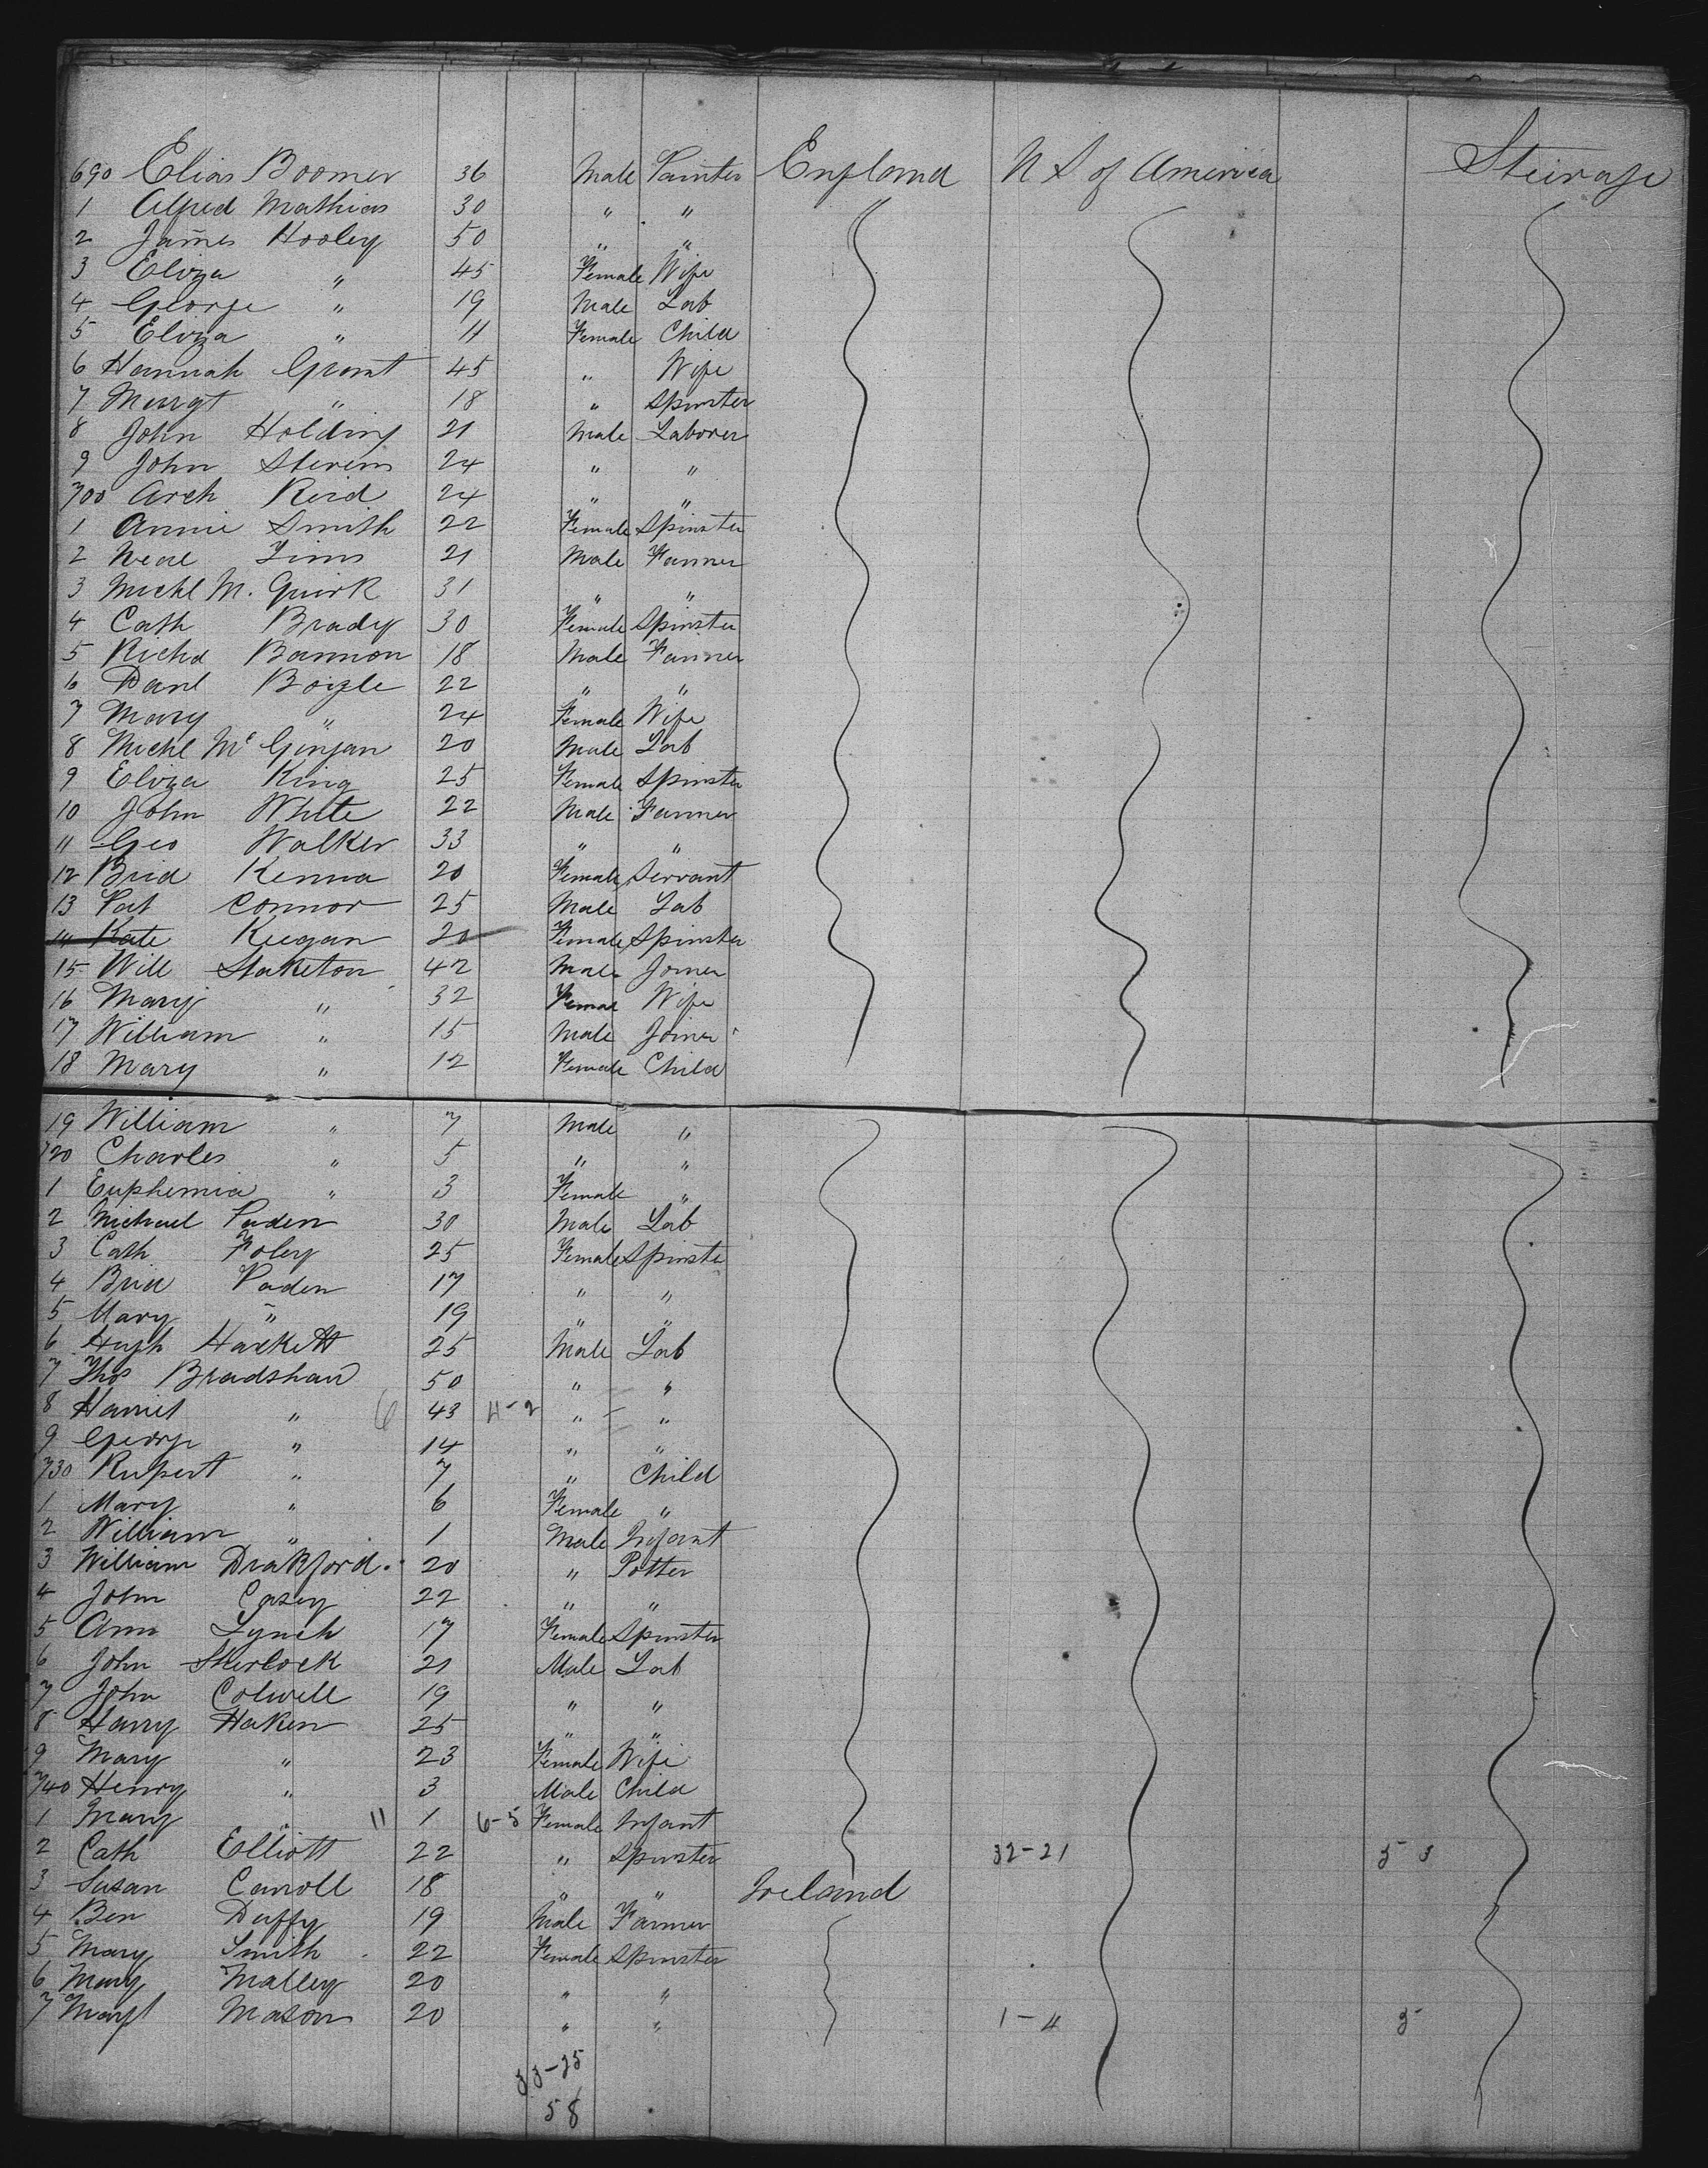 690 Elias Boomer 36 Male Painter England U S of America Steirage
1 Alfred Mathias 30 " "
2 James Hooley 50 " "
3 Eliza " 45 Female Wife
4 George " 19 Male Lab
5 Eliza " 11 Female Child
6 Hannah Grant 45 " Wife
7 Margt " 18 " Spinster
8 John Holding 21 Male Laborer
9 John Stevens 24 " "
700 Arch Reid 24 " "
1 Annie Smith 22 Female Spinster
2 Neal Tims 21 Male Farmer
3 Michl M. Quirk 31 " "
4 Cath Brady 30 Female Spinster
5 Richd Bannon 18 Male Farmer
6 Danl Boizle 22 " "
7 Mary " 24 Female Wife
8 Michl Mc Ginjan 20 Male Lab
9 Eliza King 25 Female Spinster
10 John White 22 Male Farmer
11 Geo Walker 33 " "
12 Brid Kenna 20 Female Servant
13 Pat Connor 25 Male Lab
14 Kate Keegan 20 Female Spinster
15 Will Staketon 42 Male Joiner
16 Mary " 32 Femal Wife
17 William " 15 Male Joiner
18 Mary " 12 Female Child
19 William " 7 Male "
720 Charles " 5 " "
1 Euphemia " 3 Female "
2 Michael Paden 30 Male Lab
3 Cath Foley 25 Female Spinster
4 Brid Paden 17 " "
5 Mary " 19 " "
6 Hugh Hackett 25 Male Lab
7 Thos Bradshaw 50 " "
8 Harriet " 6 43 4-2 " "
9 George " 14 " "
730 Rupert " 7 " Child
1 Mary " 6 Female "
2 William " 1 Male Infant
3 William Drakford. 20 " Potter
4 John Casey 22 " "
5 Ann Lynch 17 Female Spinster
6 John Sherlock 21 Male Lab
7 John Colwell 19 " "
8 Harry Haken 25 " "
9 Mary " 23 Female Wife
740 Henry " 3 Male Child
1 Mary " 11 1 6-5 Female Infant
2 Cath Elliott 22 " Spinster 32-21 5 3
3 Susan Carroll 18 " " Ireland
4 Ben Duffy 19 Male Farmer
5 Mary Smith 22 Female Spinster
6 Mary Malley 20 " "
7 Margt Mason 20 " " 1-4 5
33-25
58